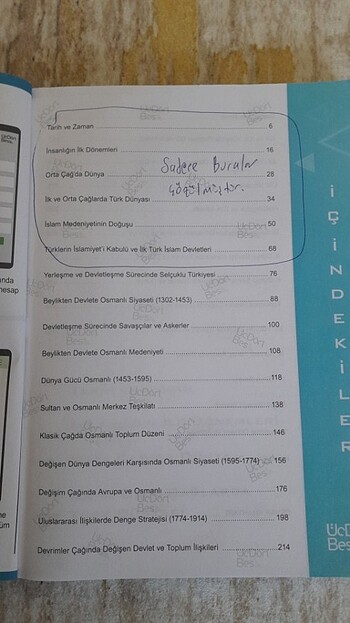 Tarih ve Zaman 6
İnsanlığın İlk Dönemleri 16
Sadece Buralar
Orta Çağ'da Dünya 28
çözülmüştür.
İlk ve Orta Çağlarda Türk Dünyası 34
İslam Medeniyetinin Doğuşu 50
Türklerin İslamiyet'i Kabulü ve İlk Türk İslam Devletleri 68
Yerleşme ve Devletleşme Sürecinde Selçuklu Türkiyesi 76
Beylikten Devlete Osmanlı Siyaseti (1302-1453) 88
Devletleşme Sürecinde Savaşçılar ve Askerler 100
Beylikten Devlete Osmanlı Medeniyeti 108
Dünya Gücü Osmanlı (1453-1595) 118
Sultan ve Osmanlı Merkez Teşkilatı 138
Klasik Çağda Osmanlı Toplum Düzeni 146
Değişen Dünya Dengeleri Karşısında Osmanlı Siyaseti (1595-1774) 156
Değişim Çağında Avrupa ve Osmanlı 176
Uluslararası İlişkilerde Denge Stratejisi (1774-1914) 198
Devrimler Çağında Değişen Devlet ve Toplum İlişkileri 214
İÇİNDEKİLER
ÜçDört
Beş